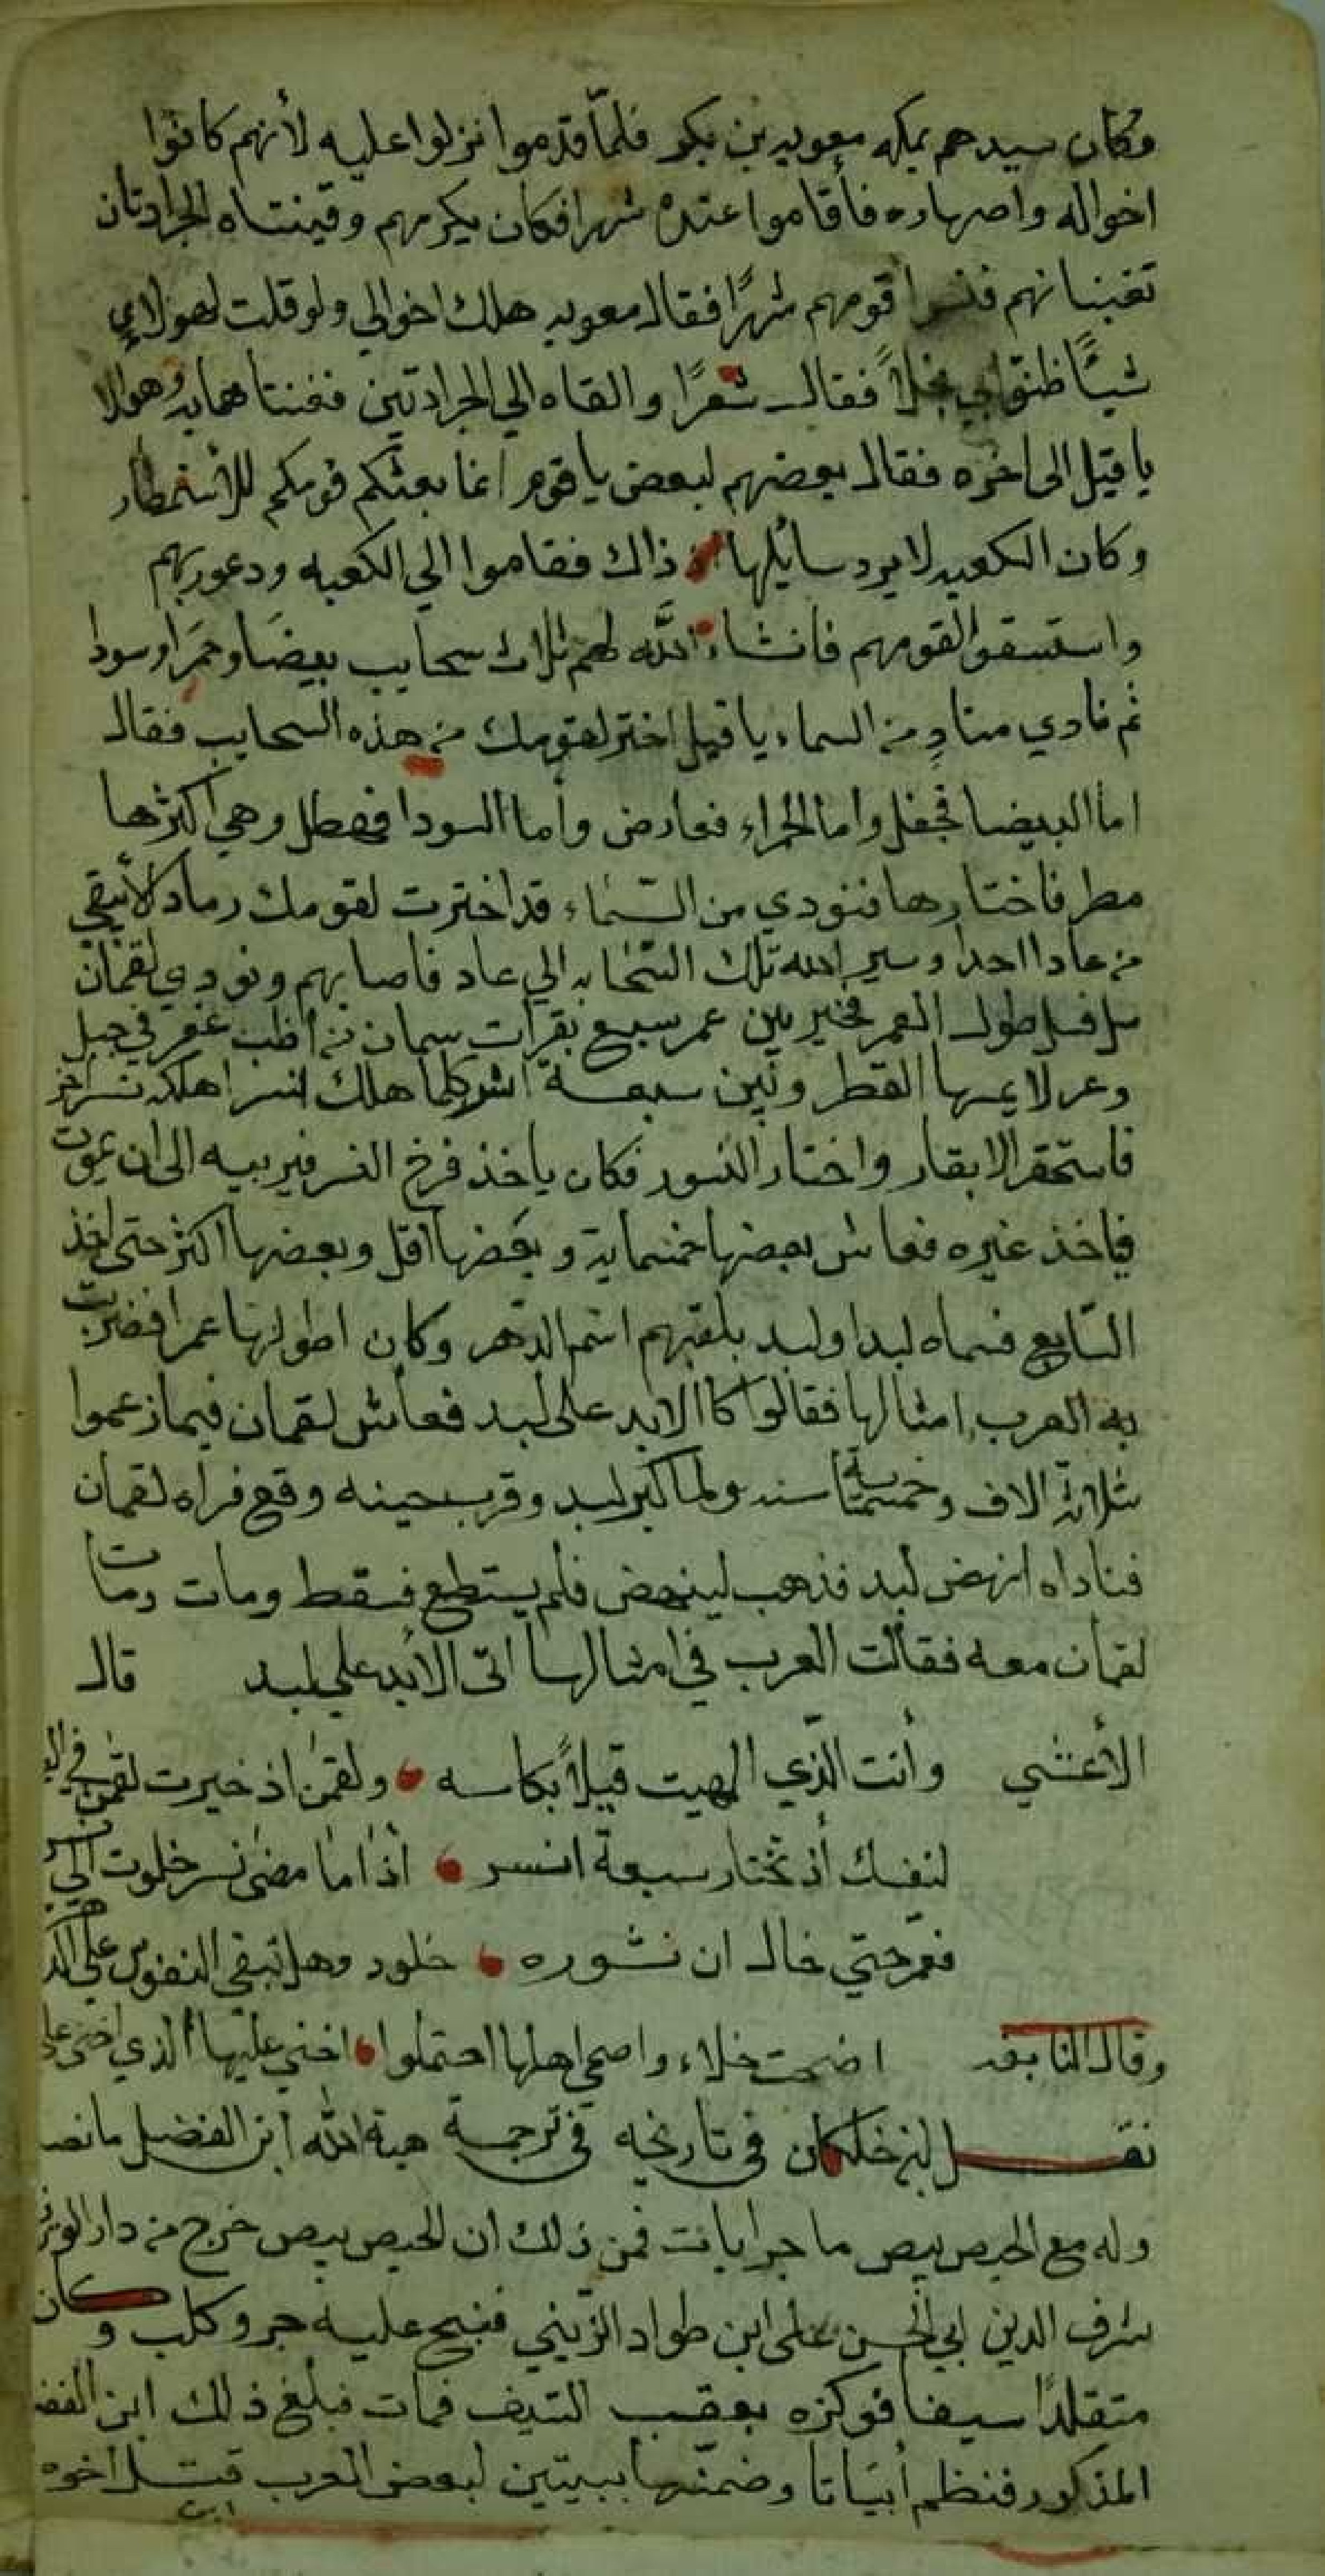 وكان سيدهم بمكه معويه بن بكر فلمّا قدموا نزلوا عليه لأنهم كانوا
اخواله واصهاره فأقاموا عنده شهرا فكان يكرمهم وقينتاه الجرادتان
تغنيانهم فنسوا قومهم شهرًا فقال معويه هلك اخوالي ولو قلت لهولاي
شيًا ظنوا بي بخلاً فقال شعرًا والقاه الي الجرادتين فغنتاهما به وهو الا
يا قيل الى اخره فقال بعضهم لبعض يا قوم انما بعثكم قومكم للأستمطار
وكان الكعبه لا يرد سايلها ذاك فقاموا الي الكعبه ودعو ربهم
واستسقوا لقومهم فانشاء الله لهم ثلاث سحايب بيضا وحمرا وسودا
ثم نادي منادٍ من السماء يا قيل اختر لقومك من هذه السحايب فقال
اما البيضا فجفل واما الحمراء فعارض وأما السودا فهطل وهي اكثرها
مطر فاختارها فنودي من السّماء قد اخترت لقومك رماد لا يبقي
من عادا احدا وسير الله تلك السّحابه الي عاد فاصابهم ونودي لقمان
سل فسل طول العمر فخير بين عمر سبع بقرات سمان من أظب عفر في جبل
وعر لا يمسها القطر وبين سبعة انسر كلما هلك نسرا هلكه نسر اخر
فاستحقر الابقار واختار النسور فكان ياخذ فرخ النسر فيربيه الى ان يموت
فياخذ غيره فعاش بعضها خمسماية وبعضها اقل وبعضها اكثر حتى اخذ
السّابع فسماه لبدا ولبد بلغتهم اسم الدّهر وكان اطولها عمرا فضربت
به العرب امثالها فقالوا كا الابد على لبد فعاش لقمان فيما زعموا
ثلاثة الاف وخمسمائة سنه ولما كبر لبد وقرب حينه وقع فراه لقمان
فناداه انهض لبد فذهب لينهض فلم يستطع فسقط ومات ومات
لقمان معه فقالت العرب في امثالها اتى الابد علي لبد قال
الأعشي وأنت الّذي الهيت قيلاً بكاسه ولقمن اذ خيرت لقمن في
لنفسك أذ تختار سبعة انسر اذا ما مضى نسر خلوت الي نسر
فعمر حتي خال ان نسوره خلود وهل تبقي النفوس علي
وقال النابغه اضحت خلاء واضحى اهلها احتملوا اخني عليها الذي اخنى على
نقل ابن خلكان في تاريخه في ترجمة هبة الله ابن الفضل ما نصه
وله مع الحيص بيص ماجرايات فمن ذلك ان الحيص بيص خرج من دار الوزير
شرف الدين ابي الحسن على ابن طراد الزينبي فنبح عليه جرو كلب وكان
متقلدًا سيفا فوكزه بعقب السّيف فمات فبلغ ذلك ابن الفضل
المذكور فنظم أبيَاتا وضمنها ببيتين لبعض العرب قتل اخوه